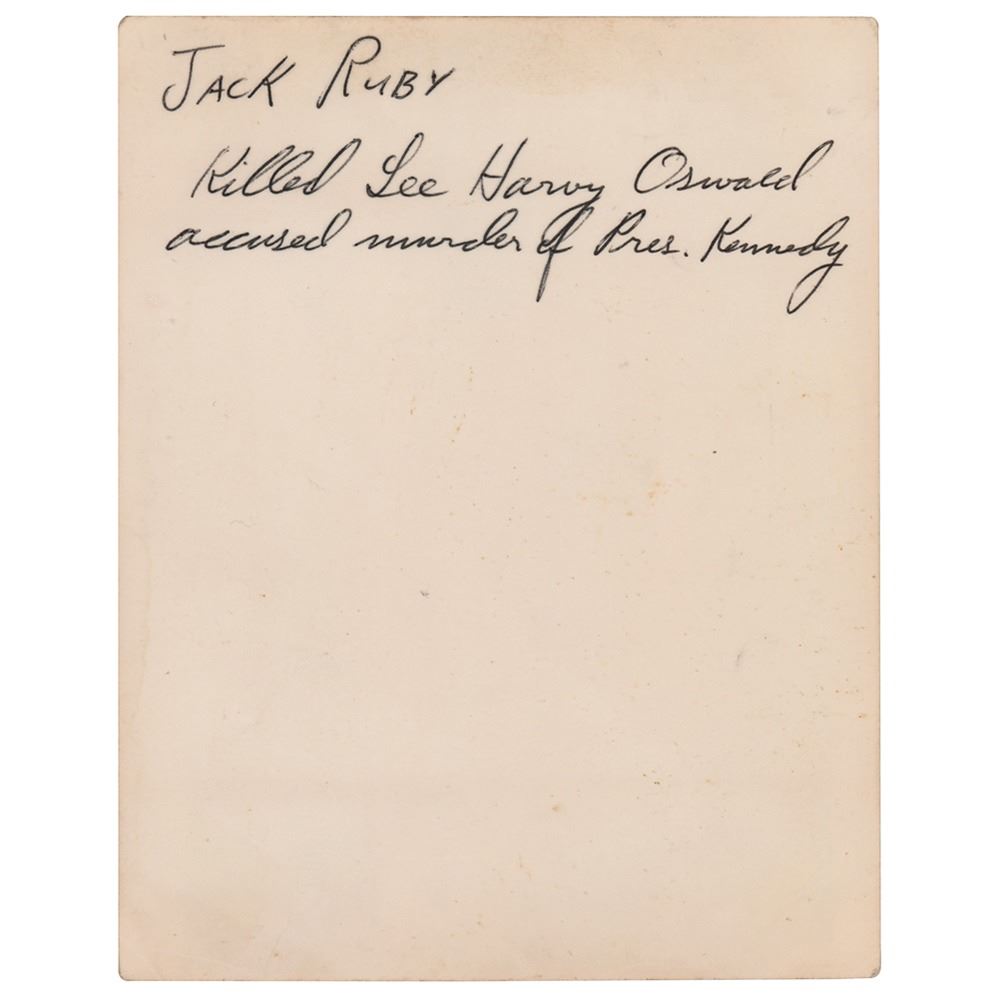 Jack Ruby
Killed Lee Harvy Oswald
accused murder of Pres. Kennedy